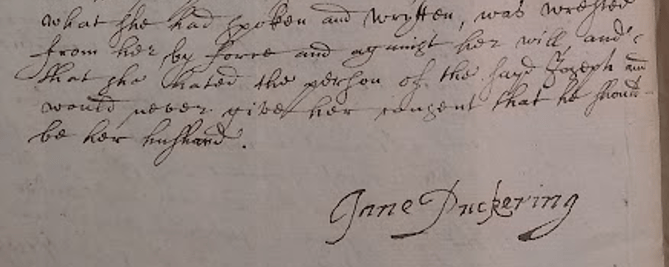 what she had spoken and wrytten, was wrested
from her by force and against her will and
that she hated the person of the sayd Joseph and
would never give her consent that he should
be her husband.
Anne Puckering